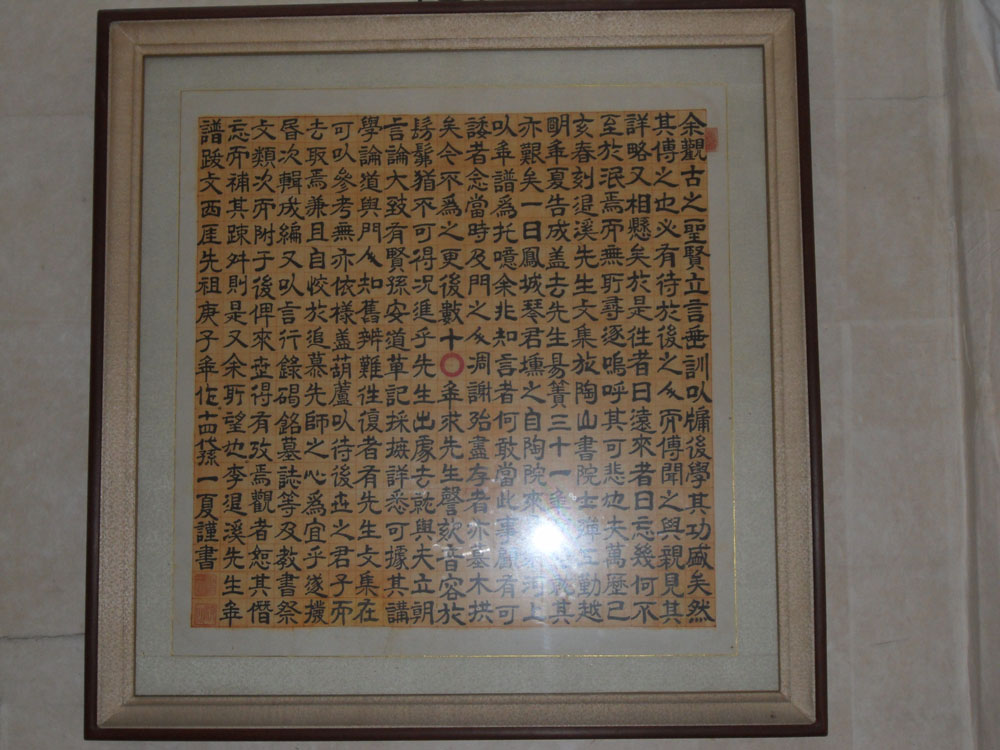 余觀古之聖賢立言垂訓以牖後學其功盛矣然
其傳之也必有待於後之人而傳聞之與親見其
詳略又相懸矣於是往者日遠來者日忘幾何不
至於泯焉而無所尋逐嗚呼其可悲也夫萬歷己
亥春刻退溪先生文集於陶山書院士勤越
明年夏告成盖去先生易簀三十一年就其
亦艱矣一日鳳城琴君壎之自陶院來河上
以年譜爲托噫余非知言者何敢當此事有可
諉者念當時及門之人凋謝殆盡存者亦墓木拱
矣今不爲之更後數十○年求先生謦欬音容於
髣髴猶不可得况進乎先生出處去就與夫立朝
言論大致有賢孫安道草記採摭詳悉可據其講
學論道與門人知舊辨難往復者有先生文集在
可以參考無亦依樣盖葫蘆以待後世之君子而
去取焉兼且自恔於追慕先師之心爲宜乎遂
昏次輯成編又以言行錄碣銘墓誌等及教書祭
文類次而附于後俾來世得有攷焉觀者恕其僭
忘而補其踈舛則是又余所望也李退溪先生年
譜跋文西厓先祖庚子年作十四代孫一夏謹書